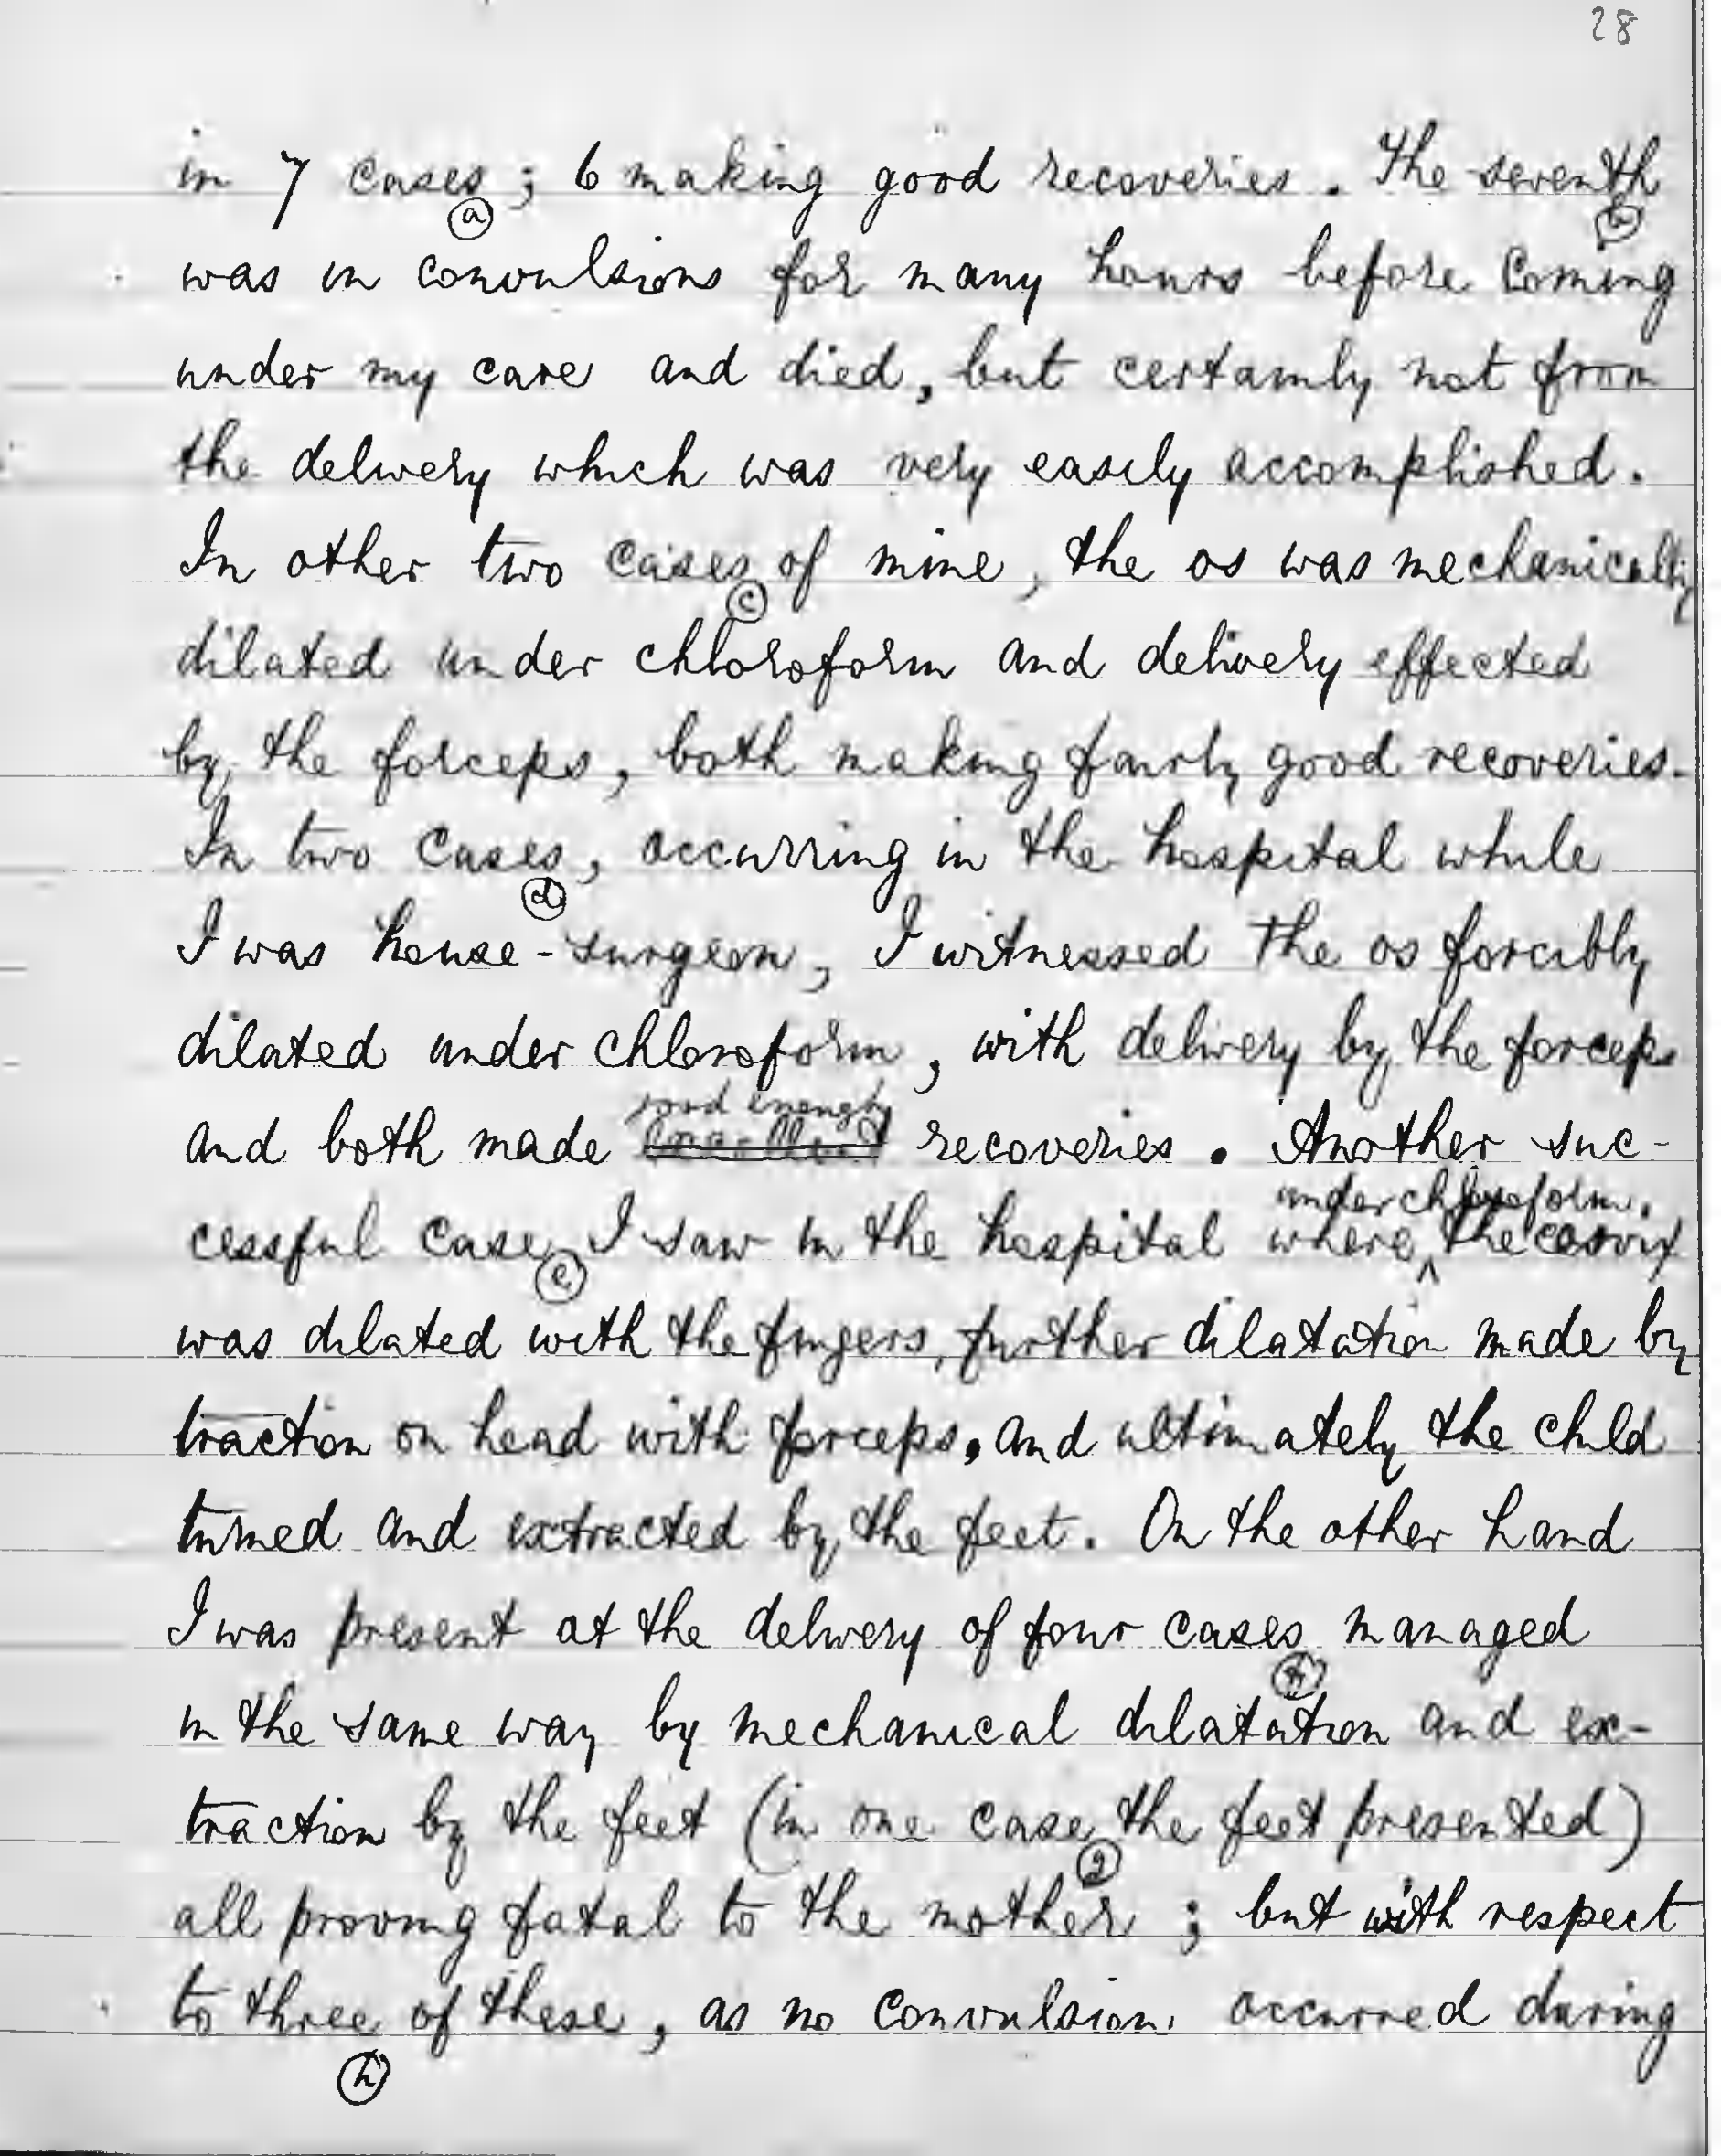 28
in 7 cases ; 6 making good recoveries . The seventh
(a) (b)
was in convulsions for many hours before coming
under my care and died, but certainly not from
the delivery which was very easily accomplished.
In other two cases of mine, the os was mechanically
(c)
dilated under chloroform and delivery effected
by the forceps, both making fairly good recoveries.
In two cases, occurring in the hospital while
(d)
I was house-surgeon, I witnessed the os forcibly
dilated under chloroform, with delivery by the forceps
good enough
and both made recoveries. Another suc-
under chloroform,
cessful case I saw in the hospital where ^ the cervix
(e)
was dilated with the fingers, further dilatation made by
traction on head with forceps, and ultimately the child
turned and extracted by the feet. On the other hand
I was present at the delivery of four cases managed
(f)
in the same way by mechanical dilatation and ex-
traction by the feet (in one case the feet presented)
(g)
all proving fatal to the mother ; but with respect
to three of these, as no convulsion occurred during
(h)